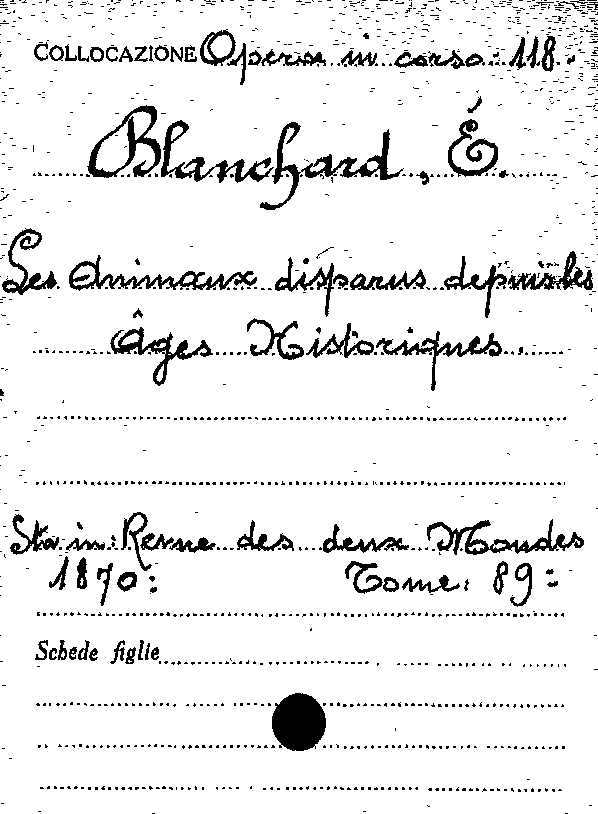 COLLOCAZIONE Opera in corso: 118.
Blanchard, É.
Les Animaux disparus depuis les
Âges Historiques.
Sta in: Revue des deux Mondes
1870: Tome: 89=
Schede figlie